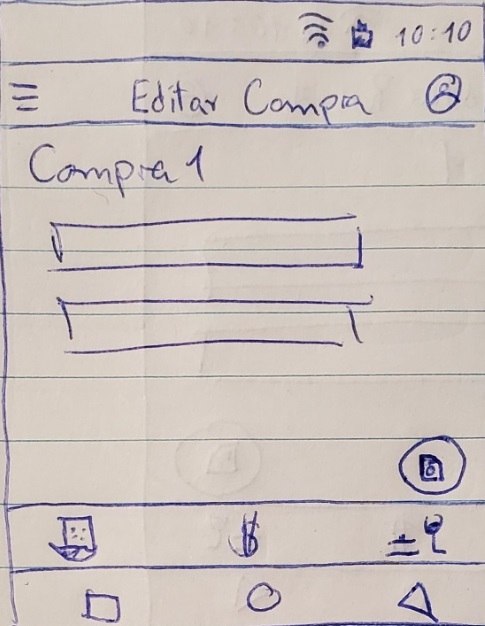 10:10
Editar Compra
Compra 1
$